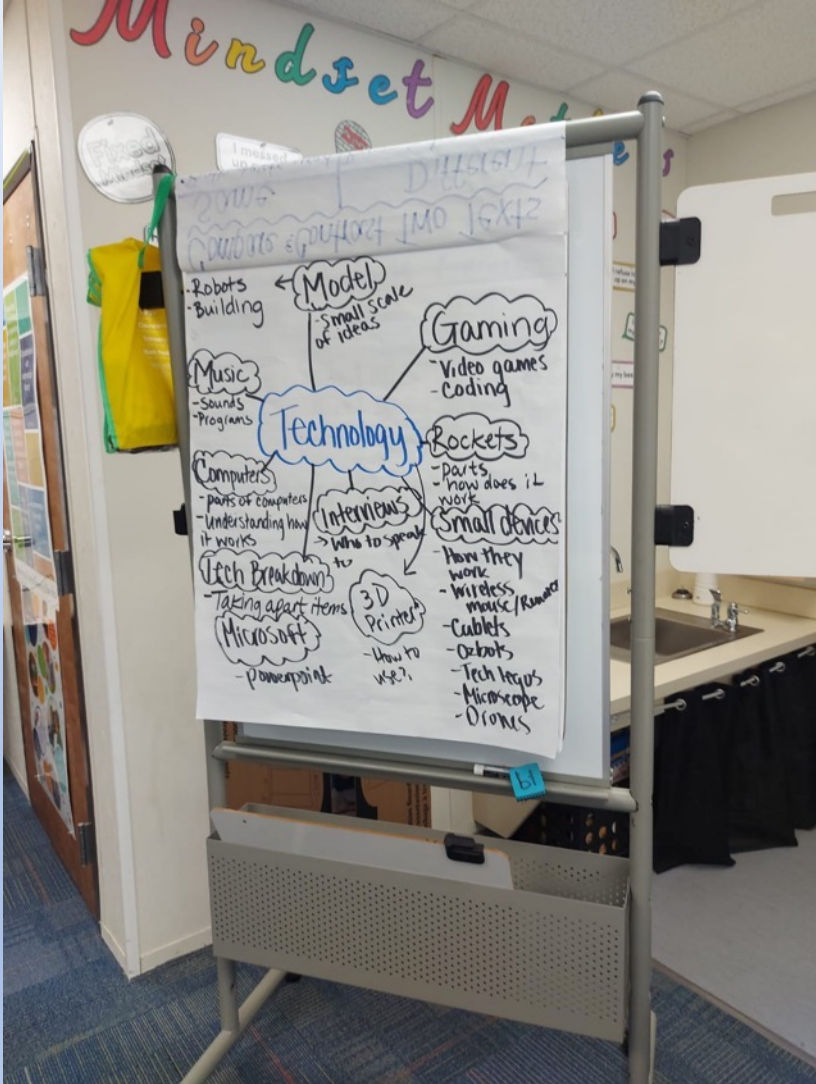 Mindset
Fixed
I messed
Different
Same
Compare & Contrast Two Texts
Model
- Robots
- Building
- Small scale
of ideas
Gaming
- Video games
- Coding
Music
- Sounds
- Programs
Technology
Rockets
- Parts
- how does it
work
Computers
- parts of computers
- Understanding how
it works
Interviews
→ Who to speak
to
Small devices
- How they
work
- Wireless
mouse/
- Cublets
- Ozbots
- Tech legos
- Microscope
- Drones
Tech Breakdown
- Taking apart items
3D
Printer
- How to
use?
Microsoft
- Powerpoint